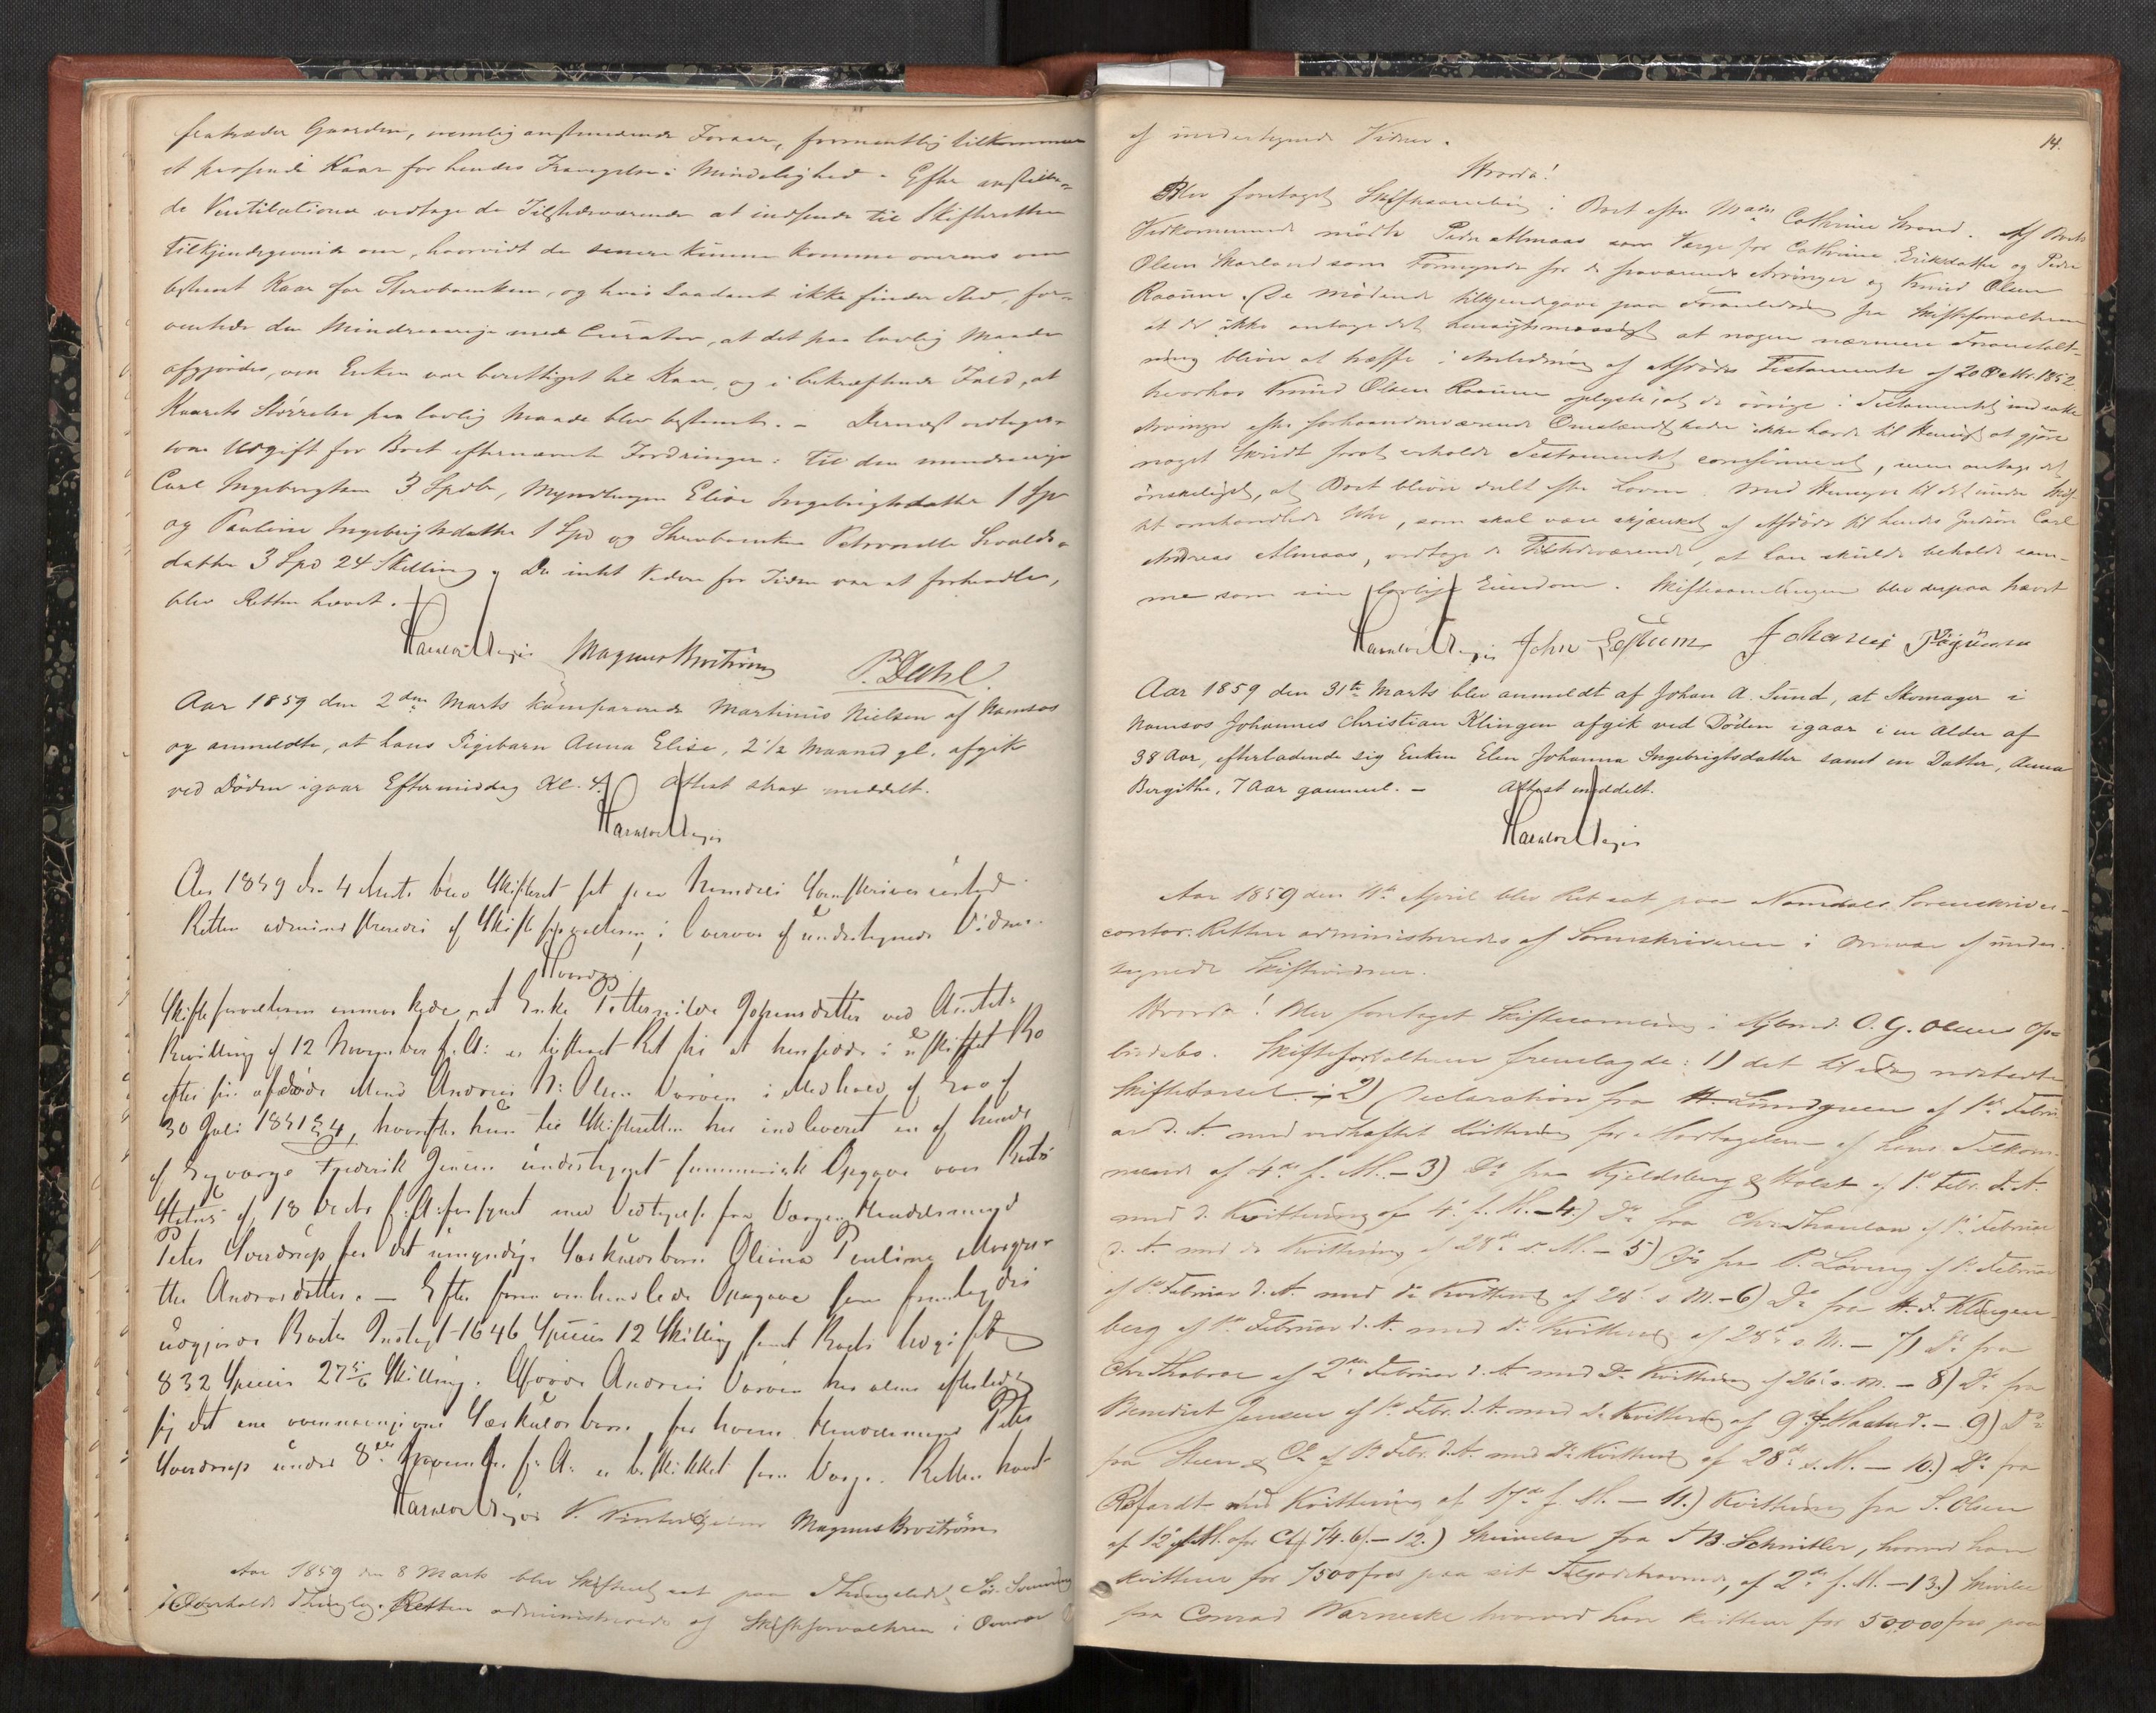 fratræder Gaarden, nemlig anstundende Foraar, formentlig tilkommer
et passende Kaar for hendes Fravigelse i Mindelighed. Efter anstille-
de Ventilationer vedtoge de Tilstedeværende at indsende til Skifteretten
Tilkjendegivende om, hvorvidt de senere kunne komme overens om
bestemt Kaar for Stervboenken, og hvis saadant ikke finder Sted, for-
ventede den Mindreaarige med Curator, at det paa lovlig Maade
afgjordes, om Enken var berettiget til Kaar, og i bekræftende Fald, at
Kaarets Størrelse paa lovlig Maade blev bestemt. – Dernæst vedtoges
som Udgift for Boet efternævnte Fordringer: til den mindreaarige
Carl Ingebrigtsen 3 Spdlr, Myndlingen Elise Ingebrigtsdatter 1 Spd
og Pauline Ingebrigtsdatter 1 Spd og Stervboenken Petronelle
datter 3 Spd 24 Skilling. Da intet Videre for Tiden var at forhandle,
blev Retten hævet.
Magnus Broström P. Dahl.
Aar 1859 den 2den Marts komparerede Martinus Nielsen af Namsos
og anmeldte, at hans Pigebarn Anna Elise, 2 1/2 Maaned gl. afgik
ved Døden igaar Eftermiddag Kl. 4. Attest strax meddelt.
Aar 1859 den 4 Marts blev Skifteret sat paa Namdals Sorenskriver
Retten administreredes af Skifteforvalteren i Overvær af undertegnede Vidner.
Hvorda!
Skifteforvalteren anmærkede, at Enke ved Amtets
Bevilling af 12 November f. A. er tilstaaet Ret til at hensidde i uskiftet Bo
efter sin afdøde Mand Andreas Olsen i Medhold af Lov af
30 Juli 1851 § 4, hvorefter hun til Skifteretten har indleveret en af hende
og Lavværge Frederik Jensen undertegnet summarisk Opgave over Boets
Status af 18 Decbr f. A. forsynet med Vedtagelse fra Værgen Handelsmand
Peter Sverdrup for det umyndige Særkuldsbarn Oliana Pauline Margre-
the Andreasdatter. – Efter foran omhandlede Opgave som fremlagdes
udgjorde Boets Indtægt 1646 Species 12 Skilling samt Boets Udgift
832 Species 27 5/6 Skilling. Afdøde Andreas har alene efterladt
sig det ene ovennævngivne Særkuldsbarn, for hvem Handelsmand Peter
Sverdrup under 8de November f. A. er beskikket som Værge. Retten hævet
Magnus Broström
Aar 1859 den 8 Marts blev Skifteret sat paa Thingstedet
i Overhalds Thinglag. Retten administreredes af Skifteforvalteren i Overvær
14.
af undertegnede Vidner.
Hvorda!
Blev foretaget Skiftesamling i Boet efter Madm Cathrine Strand. Af Boets
Vedkommende mødte Peder Almaas som Værge for Cathrine Eriksdatter og Peder
Olsen Skarland som Formynder for de fraværende Arvinger og Knud Olsen
Raaum. De Mødende tilkjendegave paa Foranledning fra Skifteforvalteren
at de ikke antoge det hensigtsmæssigt at nogen nærmere Foranstalt-
ning bliver at træffe i Anledning af Afdødes Testamente af 20 Octbr. 1852
hvorhos Knud Olsen Raaum oplyste, at de øvrige i Testamentet indsatte
Arvinger efter forhaandenværende Omstændigheder ikke havde til Hensigt at gjøre
noget Skridt forat erholde Testamentet confirmeret, men antoge det
ønskeligst, at Boet bliver delt efter Loven. Med Hensyn til det under Skif-
tet omhandlede Uhr, som skal være skjænket af Afdøde til hendes Gudsøn Carl
Andreas Almaas, vedtoge de Tilstedeværende, at han skulde beholde sam-
me som sin lovlige Eiendom. Skiftesamlingen blev derpaa hævet
John Johannes
Aar 1859 den 31te Marts blev anmeldt af Johan A. Sund, at Skomager i
Namsos Johannes Christian Klingen afgik ved Døden igaar i en Alder af
38 Aar, efterladende sig Enken Elen Johanna Ingebrigtsdatter samt en Datter, Anna
Birgithe, 7 Aar gammel. – Attest meddelt.
Aar 1859 den 11te April blev Ret sat paa Namdals Sorenskriver-
contor. Retten administreredes af Sorenskriveren i Overvær af under-
tegnede Skiftevidner.
Hvorda! Blev foretaget Skiftesamling i Kjbmd. O. G. Olsens Op-
budsbo. Skifteforvalteren fremlagde: 1) det til idag udstedte
Skiftevarsel. 2) Declaration fra H. Lundgreen af 1ste Febru
ar d. A. med vedhæftet Kvittering for Modtagelsen af hans Tilkom-
mende af 4de f. M. – 3) Do fra Kjeldsberg & Holst af 1ste Febr. d. A.
med d. Kvittering af 4de f. M. – 4.) Do fra Chr. Thaulow af 1ste Februar
d. A. med do Kvittering af 28de s. M. – 5) Do fra P. Løving af 1ste Februar
af 1ste Februar d. A. med do Kvittering af 28de s. M. – 6) Do fra H. F. Klingen-
berg af 1ste Februar d. A. med do Kvittering af 28de s. M. – 7) Do fra
af 2den Februar d. A. med Do Kvittering af 26de s. M. – 8) Do fra
Benedict Jensen af 1ste Febr. d. A. med do Kvittering af 9de f. Maaned. – 9) Do
fra Steen & Co af 1ste Febr. d. A. med Do Kvittering af 28de s. M. – 10.) Do fra
med Kvittering af 17de f. M. – 11.) Kvittering fra S. Olsen
af 12te f. M. – 12.) Skrivelse fra J B. Schnitler, hvorved han
kvitterer for 7500 fros paa sit Tilgodehavende, af 2den f. M. – 13.) Skrivelse
fra Conrad Warnecke hvorved han kvitterer for 50000 fros paa